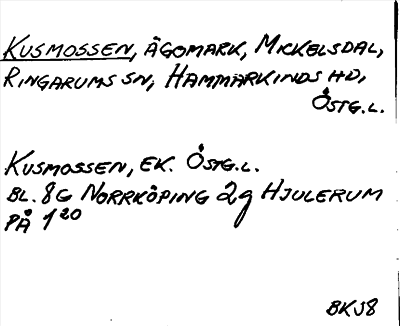 KUSMOSSEN, ÄGOMARK, MICKELSDAL,
RINGARUMS SN, HAMMARKINDS HD,
ÖSTG.L.
KUSMOSSEN, EK. ÖSTG.L.
BL. 8G NORRKÖPING 2g HJULERUM
PÅ 1²⁰
BKS8